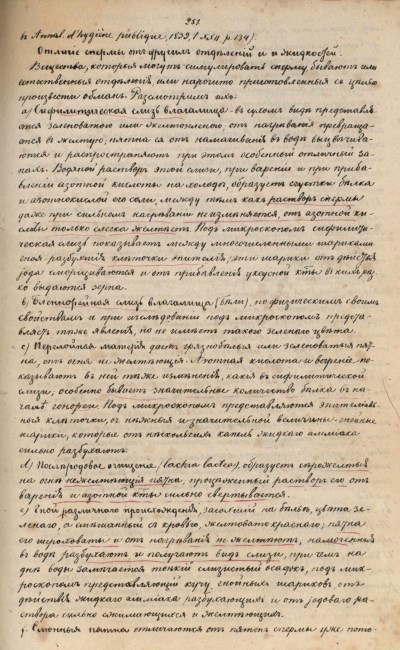 251
в Annal. d'hygiène publique, 1839, t. XXII, p. 134).
Отличіе спермы отъ другихъ отдѣленій и жидкостей.
Вещества, которыя могутъ симулировать сперму бываютъ или
естественныя отдѣленія, или нарочито приготовленныя съ цѣлью
произвести обманъ. Разсмотримъ ихъ:
а) Сифилитическая слизь влагалища - въ сухомъ видѣ представля-
ется зеленоватою или желтозеленою, отъ нагрѣванія превраща-
ется въ желтую; пятна ея отъ намачиванія въ водѣ
и распространяютъ при этомъ особенный отличный за-
пахъ. Водяной растворъ этой слизи, при вареніи и при приба-
вленіи азотной кислоты на холоду, образуетъ сгустки бѣлка
и азотнокислой его соли, между тѣмъ какъ растворъ спермы
даже при сильномъ нагрѣваніи не измѣняется, отъ азотной ки-
слоты только слегка желтѣетъ. Подъ микроскопомъ сифилити-
ческая слизь показываетъ между многочисленными шариками
гноя разбухшія клѣточки эпителія, эти шарики отъ дѣйствія
іода сморщиваются и отъ прибавленія уксусной к-ты въ нихъ рѣз-
ко выдаются зерна.
b) Бленоррейная слизь влагалища (бѣли), по физическимъ своимъ
свойствамъ и при изслѣдованіи подъ микроскопомъ предста-
вляетъ тѣже явленія, но не имѣетъ такого зеленаго цвѣта.
с) Перелойная матерія даетъ грязнобѣлыя или зеленоватыя пят-
на, отъ огня не желтѣющія. Азотная кислота и вареніе по-
казываютъ въ ней тѣже измѣненія, какія въ сифилитической
слизи; особенно бываетъ значительное количество бѣлка въ на-
чалѣ гонореи. Подъ микроскопомъ представляются эпителіаль-
ныя клѣточки, и значительной величины гнойные
шарики, которые отъ нѣсколькихъ капель жидкаго амміака
сильно разбухаютъ.
d) Послѣродовое очищеніе (lochia lactea), образуетъ сѣрожелтыя
на огнѣ нежелтѣющія пятна, процѣженный растворъ его отъ
варенія и азотной к-ты сильно свертывается.
е) Гной различнаго происхожденія, засохшій на бѣльѣ, цвѣта зе-
ленаго, а смѣшанный съ кровью, желтовато краснаго; пятна
его шероховаты и отъ нагрѣванія не желтѣютъ, намоченныя
въ водѣ разбухаютъ и получаютъ видъ слизи, при чемъ на
днѣ воды замѣчается тонкій слизистый осадокъ, подъ мик-
роскопомъ представляющій кучу гнойныхъ шариковъ отъ
дѣйствія жидкаго амміака разбухающихъ и отъ іодоваго ра-
створа сильно сжимающихся и желтѣющихъ.
f. Смоляныя пятна отличаются отъ пятенъ спермы уже пото-